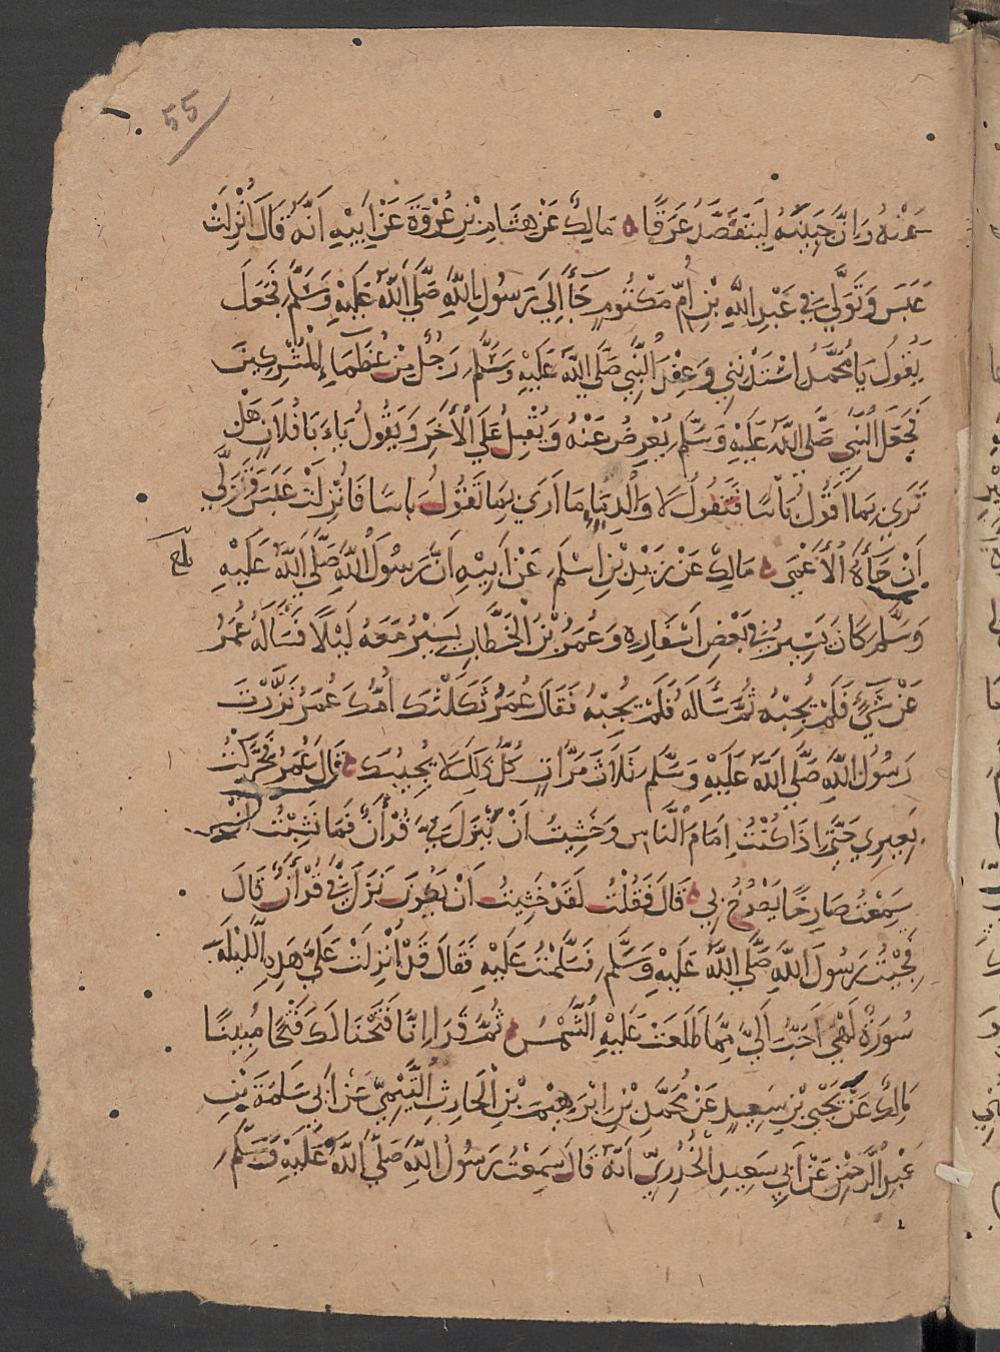 55
عَنْهُ وَاِنَّ جَبِينَهُ لِيَتَفَصَّدُ عَرَقًا مَالِكٌ عَنْ هِشَامِ بْنِ عُرْوَةَ عَنْ اَبِيْهِ اَنَّهُ قَالَ اُنْزِلَتْ
عَبَسَ وَتَوَلَّي فِي عَبْدِ اللَّهِ بْنِ اُمِّ مَكْتُومٍ جَآءَ اِلَي رَسُولِ اللَّهِ صَلَّي اَللَّهُ عَلَيْهِ وَسَلَّمَ فَجَعَلَ
يَقُولُ يَا مُحَمَّدُ اسْتَدْنِنِي وَعِنْدَ اْلنَّبِي صَلَّي اللَّهُ عَلَيْهِ وَسَلَّمَ رَجُلٌ مِنْ عُظَمَآءِ اِلْمُشْرِكِينَ
فَجَعَلَ اْلنَّبِي صَلَّي اللَّهُ عَلَيْهِ وَسَلَّمَ يُعْرِضُ عَنْهُ وَيُقْبِلُ عَلَي اْلأَخَرِ وَيَقُولُ يَاءَبَا فُلاَنٍ هَلْ
تَرَي بِمَا اَقُولُ بَأْسًا فَيَقُولُ لاَ وَالْدِمَاءِ مَا اَرَي بِمَا تَقُولُ بَاسَا فَاُنْزِلَتْ عَبَسَ وَتَوَلَّي
اَنْ جَآءَهُ اْلأَعْمَي مَالِكٌ عَنْ زَيْدِ بْنِ اَسْلَمَ عَنْ اَبِيْهِ اَنَّ رَسُولَ اْللَّهِ صَلَّي اَللَّهُ عَلَيْهِ
وَسَلَّمَ كَانَ يَسِيرُ فِي بَعْضِ اَسْفَارِهِ وَعُمَرُ بْنُ الْخَطَّابِ يَسِيْرُ مَعَهُ لَيْلًا فَسَاَلَهُ عُمَرُ
عَنْ شَيْءٍ فَلَمْ يُجِبْهُ ثُمَّ سَأَلَهُ فَلَمْ يُجِبْهُ فَقَالَ عُمَرُ ثَكَلَتْكَ اُمُّكَ عُمَرُ نَزَّرْتَ
رَسُولَ اللَّهِ صَلَّي اَللَّهُ عَلَيْهِ وَسَلَّمَ ثَلاَثَ مَرَّاتٍ كُلُّ ذَلِكَ لاَ يُجِيبُكَ قَالَ عُمَرُ فَحَرَّكْتُ
بَعِيرِي حَتَّي اِذَا كُنْتُ اِمَامَ اْلنَّاسِ وَخَشِيتُ اَنْ يُنْزَلَ فِيَّ قُرْأَنٌ فَمَا نَشِبْتُ اَنْ
سَمِعْتُ صَارِخًا يَصْرُخُ بِي قَالَ فَقُلْتُ لَقَدْ خَشِيتُ اَنْ يَكُونَ نَزَلَ فِيَّ قُرْأَنٌ قَالَ
فَجِئْتُ رَسُولَ اَللَّهِ صَلَّي اَللَّهُ عَلَيْهِ وَسَلَّمَ فَسَلَّمْتُ عَلَيْهِ فَقَالَ قَدْ اُنْزِلَتْ عَلَيَّ هَذِهِ اَللَّيْلَةَ
سُورَةٌ لَهِيَ اَحَبُّ اِلَيَّ مِمَّا طَلَعَتْ عَلَيْهِ اْلشَّمْسُ ثُمَّ قَرَا اِنَّا فَتَحْنَا لَكَ فَتْحًا مُبِينًا
مَالِكٌ عَنْ يَحْيَي بْنِ سَعِيدٍ عَنْ مُحَمَّدِ بْنِ اِبْرَهِيمَ بْنِ الْحَارِثِ اْلتَّيْمِيِّ عَنْ اَبِي سَلَمَةَ بْنِ
عَبْدِ اْلرَّحْمَنِ عَنْ اَبِي سَعِيدِ الْخُدْرِيِّ اَنَّهُ قَالَ سَمِعْتُ رَسُولَ اْللَّهِ صَلَّي اَللَّهُ عَلَيْهِ وَسَلَّمَ